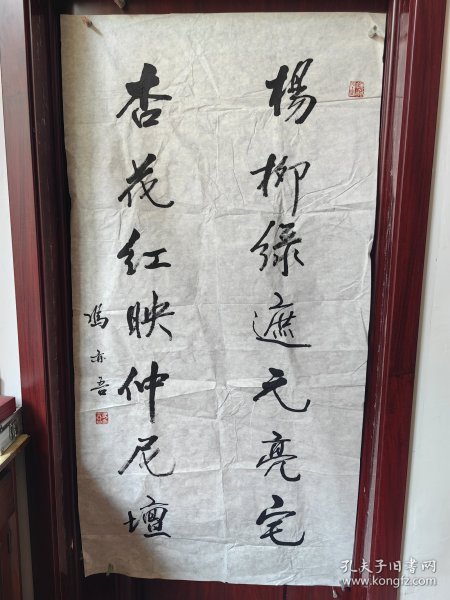 楊柳绿遮元亮宅
杏花红映仲尼壇
馮亦吾
孔夫子旧书网
www.kongfz.com